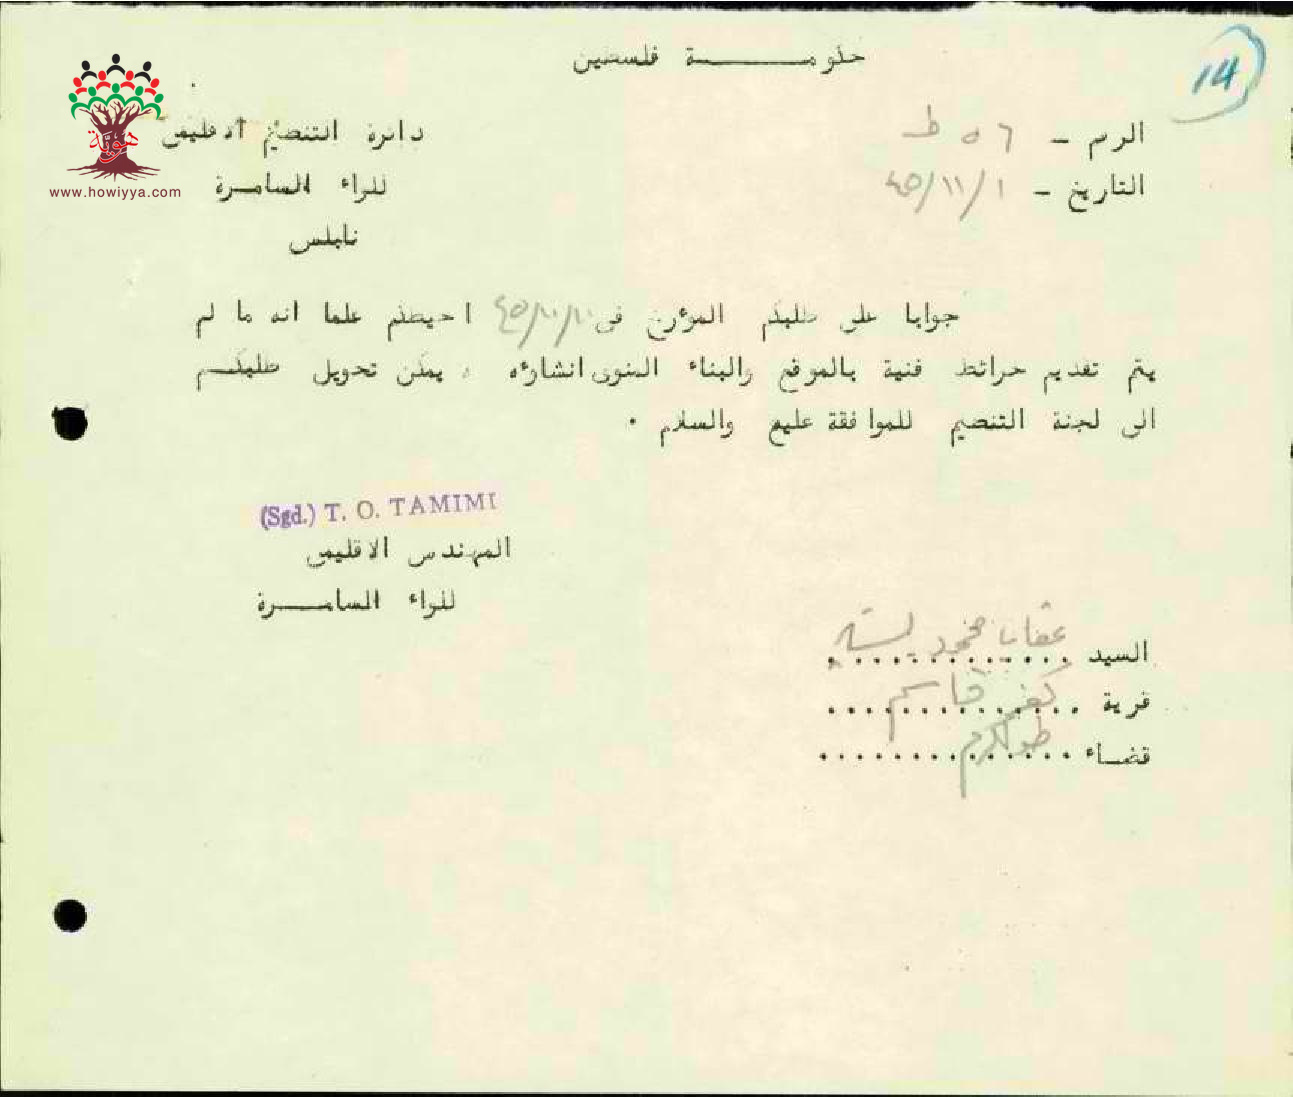 14
حكومـــــة فلسطين
هوية
www.howiyya.com
دائرة التنظيم الاقليمي
للواء السامرة
نابلس
الرقم - ٥٦ ط
التاريخ - ٤٥/١١/١
جوابا على طلبكم المؤرخ في ٤٥/١٠/١٠ احيطكم علما انه ما لم
يتم تقديم خرائط فنية بالموقع والبناء المنوى انشاؤه ، يمكن تحويل طلبكـم
الى لجنة التنظيم للموافقة عليه والسلام .
(Sgd.) T. O. TAMIMI
المهندس الاقليمي
للواء السامـــرة
السيد محمود
قرية كفر قاسم
قضاء طولكرم